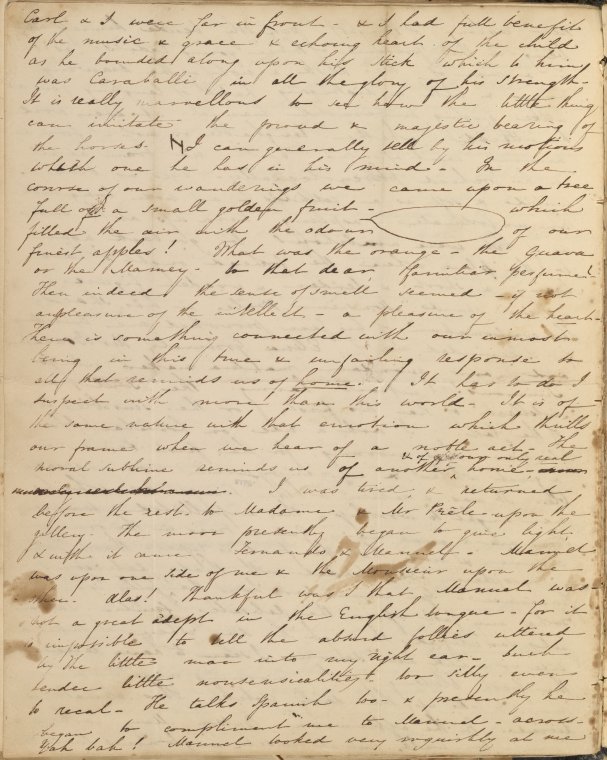 Carl & I were far in front - & I had full benefit
of the music & grace & echoing heart of the child
as he bounded along upon his Stick which to him
was Caraballi in all the glory of his strength -
It is really marvellous to see how the little thing
can imitate the proud & majestic bearing of
the horses. I can generally tell by his motions
which one he has in his mind - In the
course of our wanderings we came upon a tree
full of a small golden fruit - which
filled the air with the odour of our
finest apples! What was the orange - the Guava
or the Mamey - to that dear familiar perfume!
Then indeed the sense of smell seemed - if not
a pleasure of the intellect - a pleasure of the heart -
There is something connected with our inmost
being in this true & unfailing response to
all that reminds us of home. It has to do I
suspect with more than this world - It is of
the same nature with that emotion which thrills
our frame when we hear of a noble act. The
& of our only real
moral sublime reminds us of another home.
I was tired, & returned
before the rest to Madame & Mr upon the
gallery. The moon presently began to give light
& with it came Fernando & Manuel - Manuel
was upon one side of me & the Monsieur upon the
other. Alas! Thankful was I that Manuel was
not a great adept in the English tongue - for it
is impossible to tell the absurd follies uttered
by the little man into my right ear - Such
tender little nonsensicalities - too silly even
to recal - He talks Spanish too - & presently he
began to compliment me to Manuel - across -
Yah bah! Manuel looked very roguishly at me